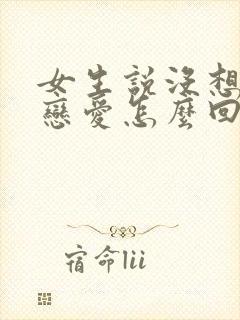 女生説沒想
戀愛怎麼回
宿命lii